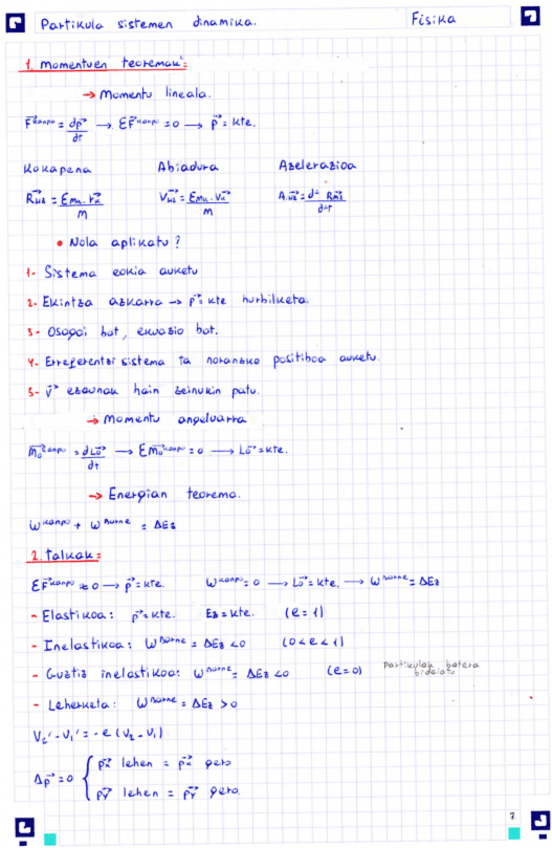 Partikula sistemen dinamika. Fisika
1. Momentuen teoremak:
→ Momentu lineala.
F⃗ᵏᵃⁿᵖᵒ = dp⃗/dt → ΣF⃗ᵏᵃⁿᵖᵒ = 0 → p⃗ = kte.
Kokapena Abiadura Azelerazioa
R⃗ₕz = Σmₖ·r⃗ₖ/m V⃗ₕz = Σmₖ·v⃗ₖ/m
• Nola aplikatu?
1- Sistema egokia aukeratu
2- Ekintza azkarra → p⃗ = kte hurbilketa.
3- Osagai bat, ekuazio bat.
4- Erreferentzi sistema ta noranzko positiboa aukeratu.
5- v⃗ ezagunak hain zeinukin patu.
→ Momentu angeluarra
M⃗₀ᵏᵃⁿᵖᵒ = dL⃗₀/dt → ΣM⃗₀ᵏᵃⁿᵖᵒ = 0 → L⃗₀ = kte.
→ Energian teorema.
Wᵏᵃⁿᵖᵒ + Wᵇᵃʳⁿᵉ = ΔEz
2. Talkak:
ΣF⃗ᵏᵃⁿᵖᵒ ≈ 0 → p⃗ = kte. Wᵏᵃⁿᵖᵒ = 0 → L⃗₀ = kte. → Wᵇᵃʳⁿᵉ = ΔEz
- Elastikoa: p⃗ = kte. Ez = kte. (e = 1)
- Inelastikoa: Wᵇᵃʳⁿᵉ = ΔEz < 0 (0 < e < 1)
- Guztiz inelastikoa: Wᵇᵃʳⁿᵉ = ΔEz < 0 (e = 0) Partikulak batera bidaiatu
- Leherketa: Wᵇᵃʳⁿᵉ = ΔEz > 0
V₂' - V₁' = -e (V₂ - V₁)
Δp⃗ = 0 { p⃗x lehen = p⃗x gero
p⃗y lehen = p⃗y gero.